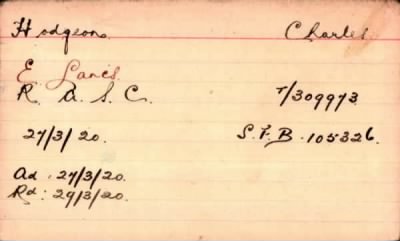 Hodgson. Charles.
E Lancs.
R. A. S. C. T/309973.
27/3/20. S.F.B. 105326.
Ad: 27/3/20.
Rd: 29/3/20.